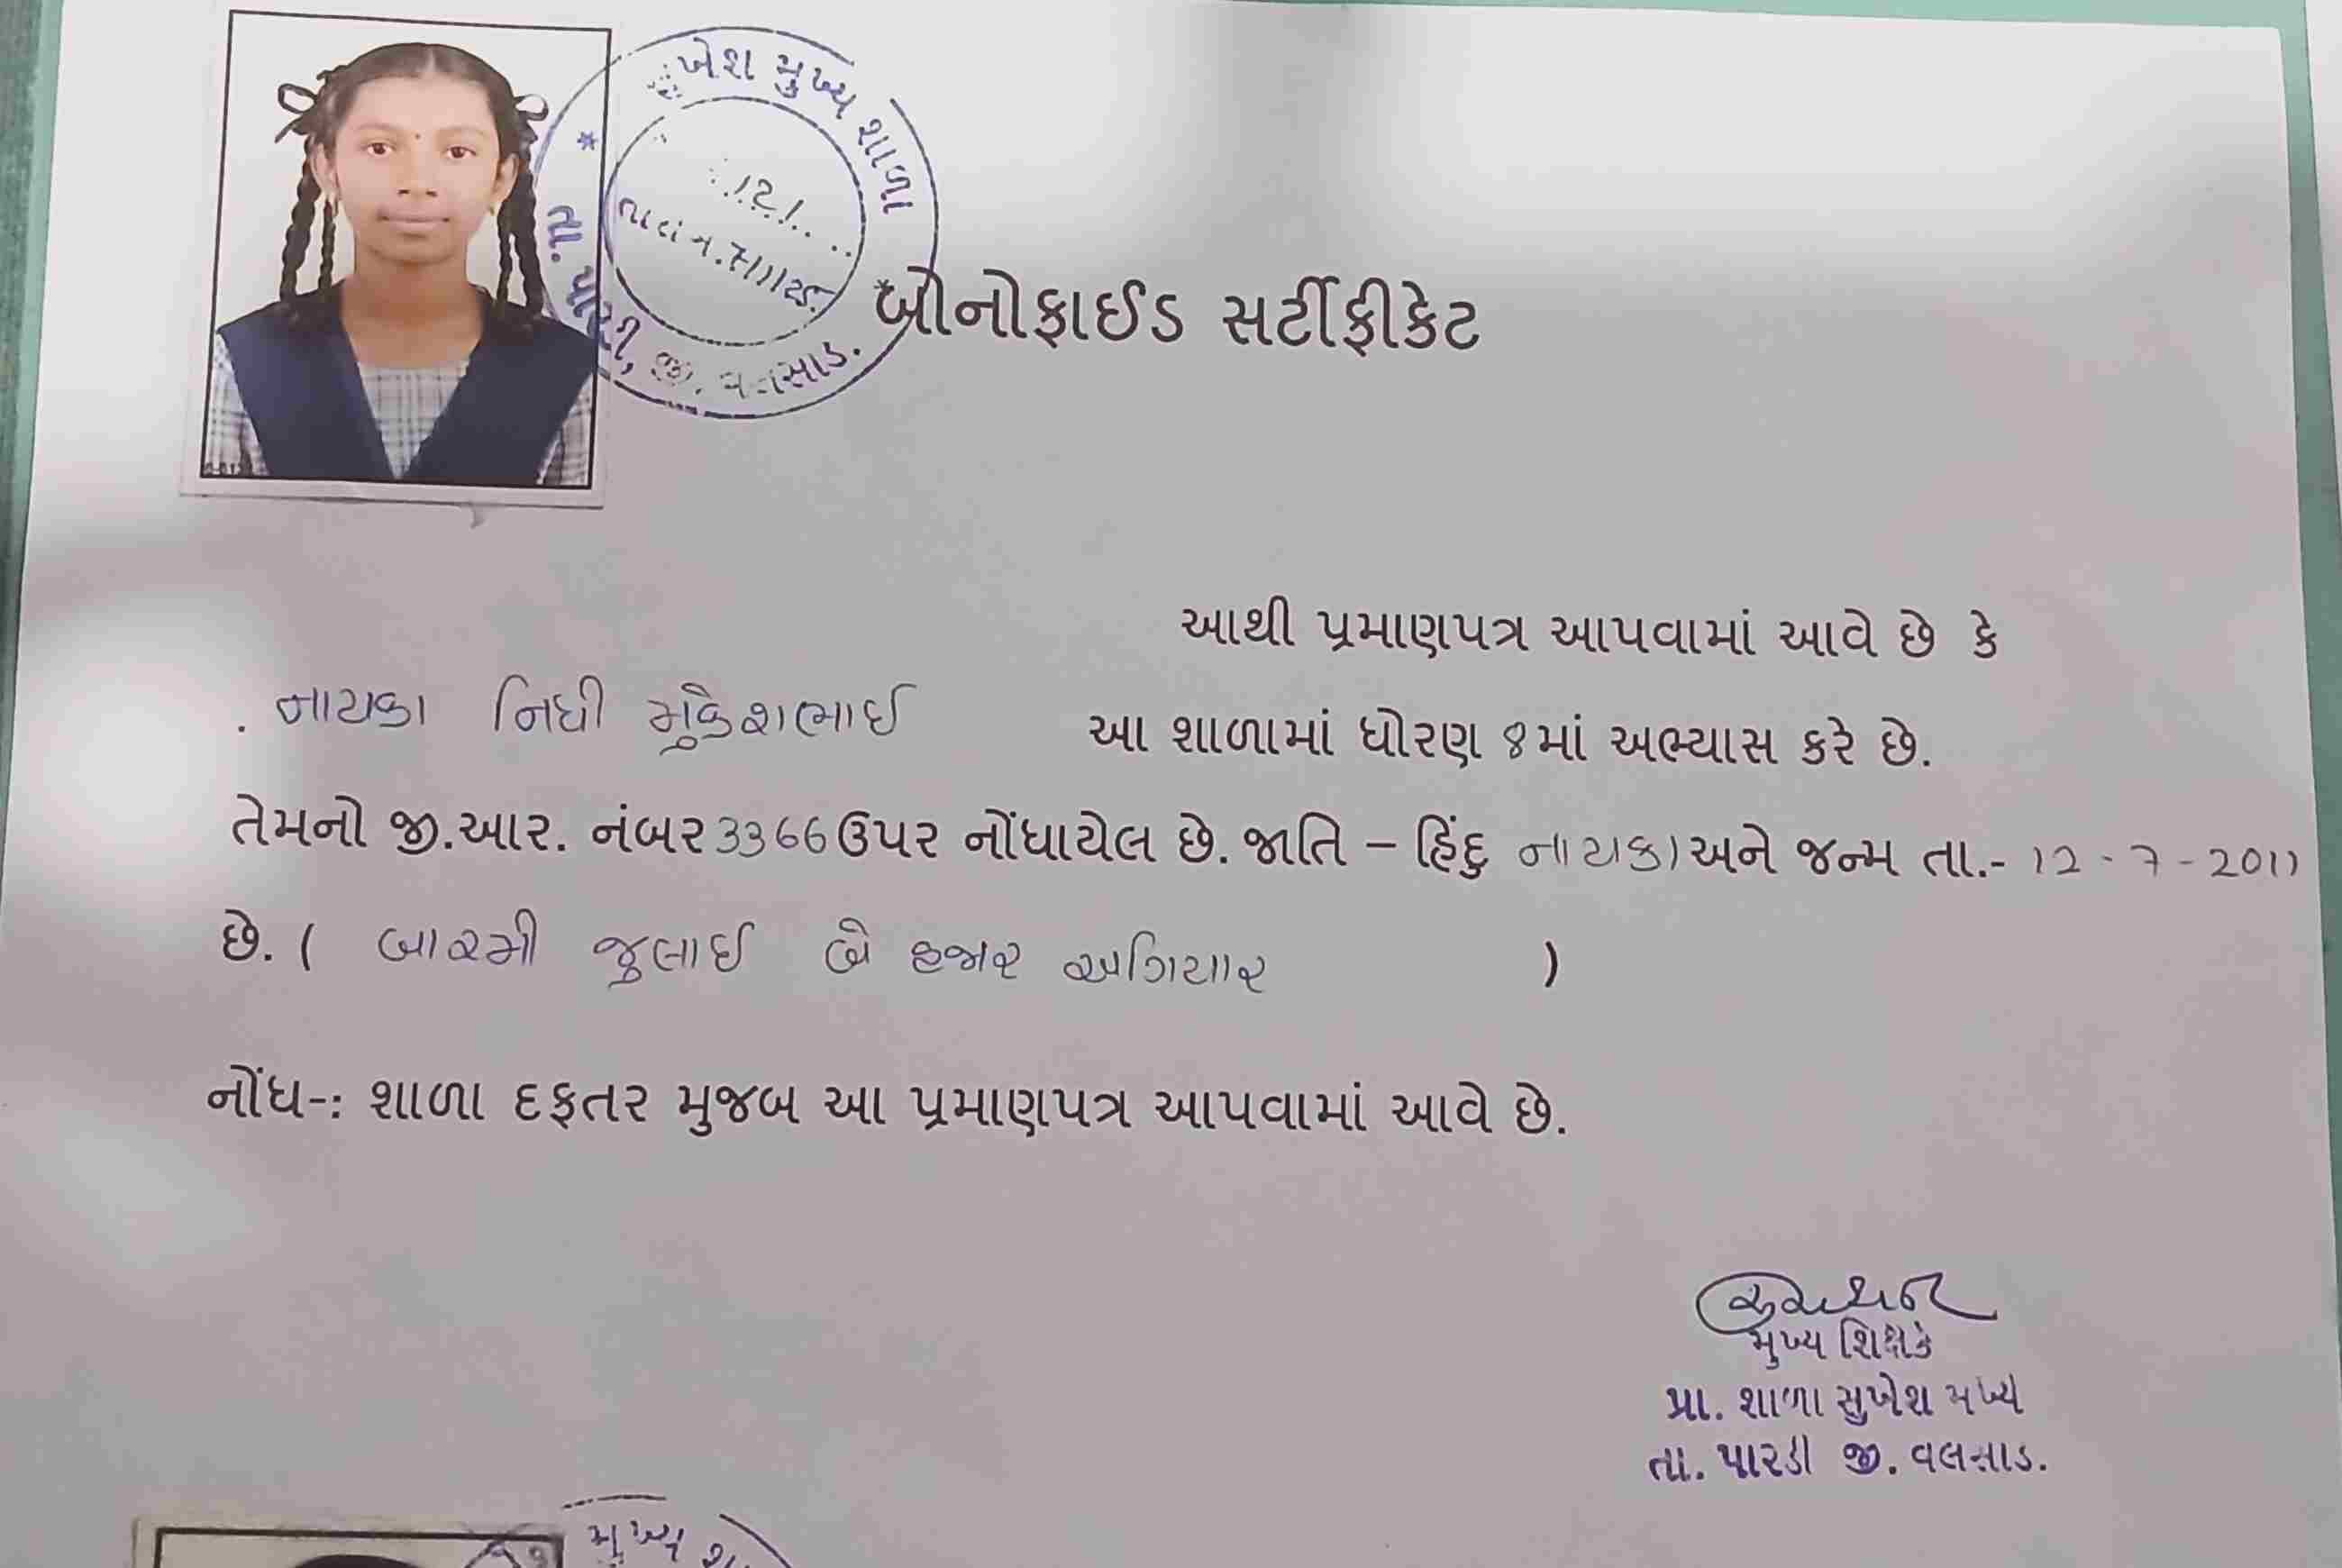 મુખ્ય શાળા
તા. પારડી, જી. વલસાડ.
બોનોફાઈડ સર્ટીફીકેટ
આથી પ્રમાણપત્ર આપવામાં આવે છે કે
. નાયકા નિધી મુકેશભાઈ આ શાળામાં ધોરણ 8માં અભ્યાસ કરે છે.
તેમનો જી.આર. નંબર 3366 ઉપર નોંધાયેલ છે. જાતિ – હિંદુ નાયકા અને જન્મ તા.- 12 - 7 - 2011
છે. ( બારમી જુલાઈ બે હજાર અગિયાર )
નોંધ-: શાળા દફતર મુજબ આ પ્રમાણપત્ર આપવામાં આવે છે.
મુખ્ય શિક્ષક
પ્રા. શાળા સુખેશ મુખ્ય
તા. પારડી જી. વલસાડ.
મુખ્ય